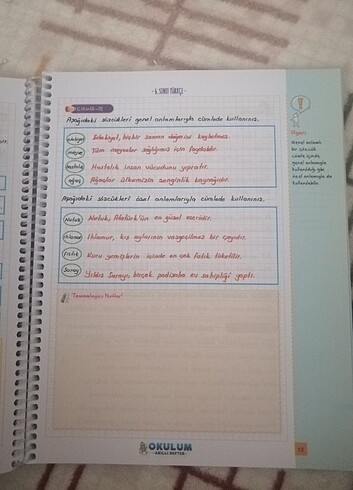 - 6. SINIF TÜRKÇE -
Aşağıdaki sözcükleri genel anlamlarıyla cümlede kullanınız.
edebiyat Edebiyat, hiçbir zaman değerini kaybetmez.
meyve Tüm meyveler sağlığımız için faydalıdır.
hastalık Hastalık insan vücudunu yıpratır.
ağaç Ağaçlar ülkemizin zenginlik kaynağıdır.
Aşağıdaki sözcükleri özel anlamlarıyla cümlede kullanınız.
Nutuk Nutuk, Atatürk'ün en güzel eseridir.
Ihlamur Ihlamur, kış aylarının vazgeçilmez bir çayıdır.
Fıstık Kuru yemişlerin içinde en çok fıstık tüketilir.
Saray Yıldız Sarayı, birçok padişaha ev sahipliği yaptı.
Uyarı
Genel anlamlı
bir sözcük
cümle içinde
genel anlamıyla
kullanıldığı gibi
özel anlamıyla da
kullanılabilir.
OKULUM
AKILLI DEFTER